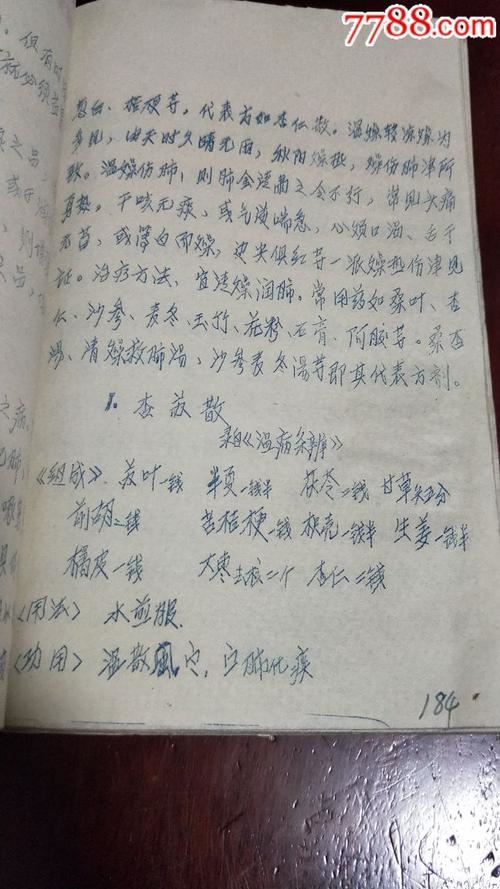 7788.com
葱白、桔梗等，代表方如杏仁散。温燥较凉燥为
多见，由天时久晴无雨，秋阳燥热，燥伤肺津所
致。温燥伤肺，则肺金清肃之令不行，常见头痛
身热。干咳无痰，或气逆喘急，心烦口渴、舌干
无苔，或薄白而燥，边尖俱红等一派燥热伤津见
证。治疗方法，宜清燥润肺。常用药如桑叶、杏
仁、沙参、麦冬、玉竹、花粉、石膏、阿胶等。桑杏
汤、清燥救肺汤，沙参麦冬汤等即其代表方剂。
1. 杏苏散
录自《温病条辨》
《组成》 苏叶一钱 半夏一钱半 茯苓二钱 甘草
前胡二钱 苦桔梗一钱 枳壳一钱半 生姜一钱半
橘皮一钱 大枣去核二个 杏仁二钱
《用法》 水煎服.
《功用》 温散风，化痰
184